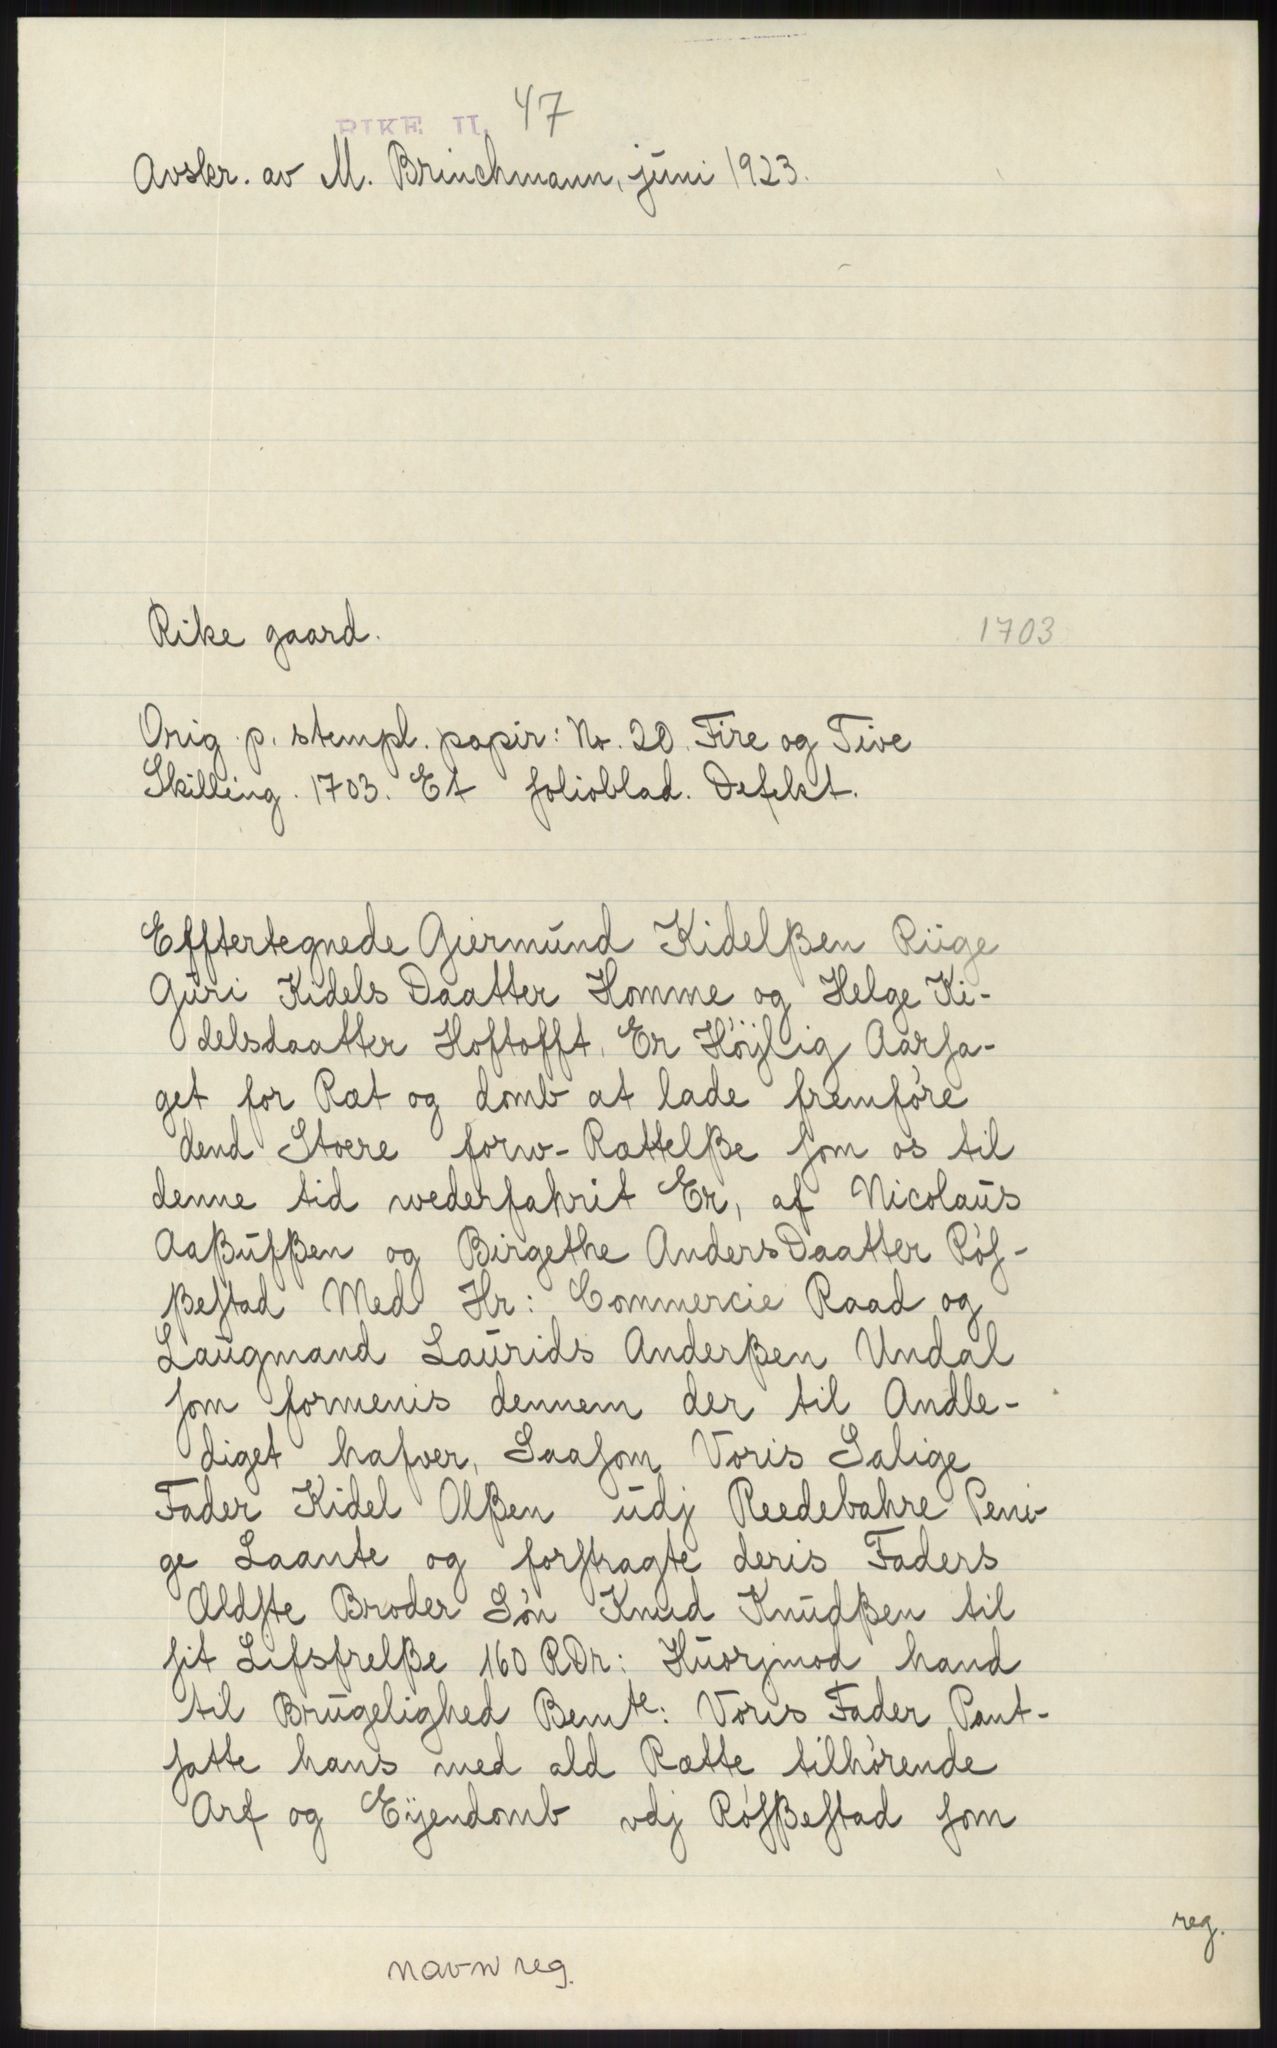 RIKE II. 47
Avskr. av M. Brinchmann, juni 1923.
Rike gaard. 1703
Orig. p. stempl. papir: No. 20. Fire og Tive
Skilling. 1703. Et folioblad. Defekt.
Efftertegnede Giermund Kidelßen Riige
Guri Kidels Daatter Homme og Helge Ki-
delsdaatter Hoftofft, Er Høÿlig Aarsa-
get for Ræt og domb at lade fremføre
dend Stoere forw-Rættelße som os til
denne tid wederfahrit Er, af Nicolaus
Aaßulfßen og Birgethe Anders Daatter Røs-
ßestad Med Hr: Commercie Raad og
Laugmand Laurids Anderßen Undal
som formenis dennem der til Andle-
diget hafver, Saasom Voris Salige
Fader Kidel Olßen udj Reedebahre Peni-
ge Laante og forstragte deris Faders
Ældste Broder Søn Knud Knudßen til
sit Lifsfrelße 160 RDr: Huorjmod hand
til Brugelighed Bemte: Voris Fader Pant-
satte hans med ald Rætte tilhørende
Arf og Eÿendomb vdj Røsßestad som
reg.
navn reg.